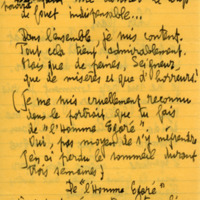 de fouet indispensable...
Dans l'ensemble je suis content.
Tout cela tient admirablement.
Mais que de peines, Seigneur,
que de misères et que d'horreurs!
(Je me suis cruellement reconnu
dans le portrait que tu fais
de "l'Homme Egaré"
Oui, pas moyen de s'y méprendre
J'en ai perdu le sommeil durant
trois semaines)
De "l'Homme Egaré"